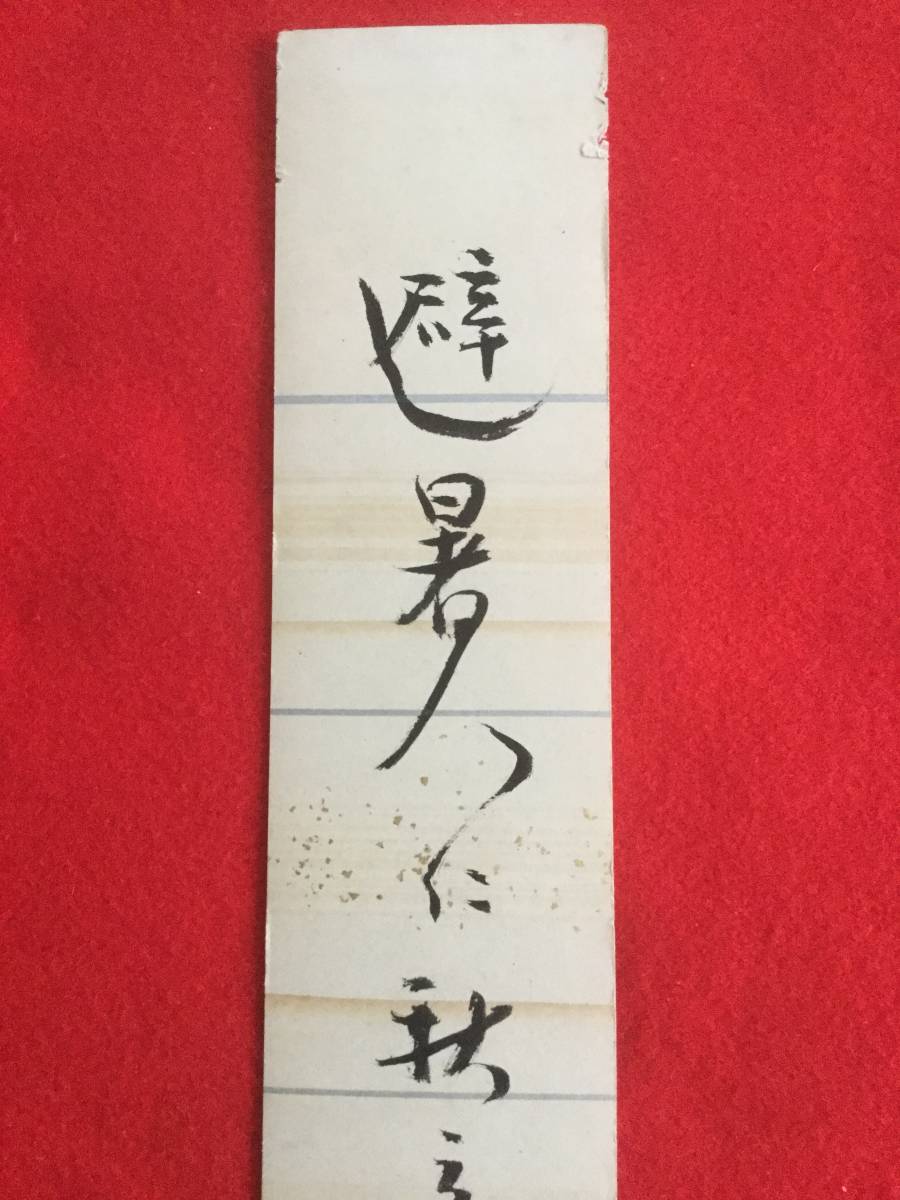 避暑人仁秋